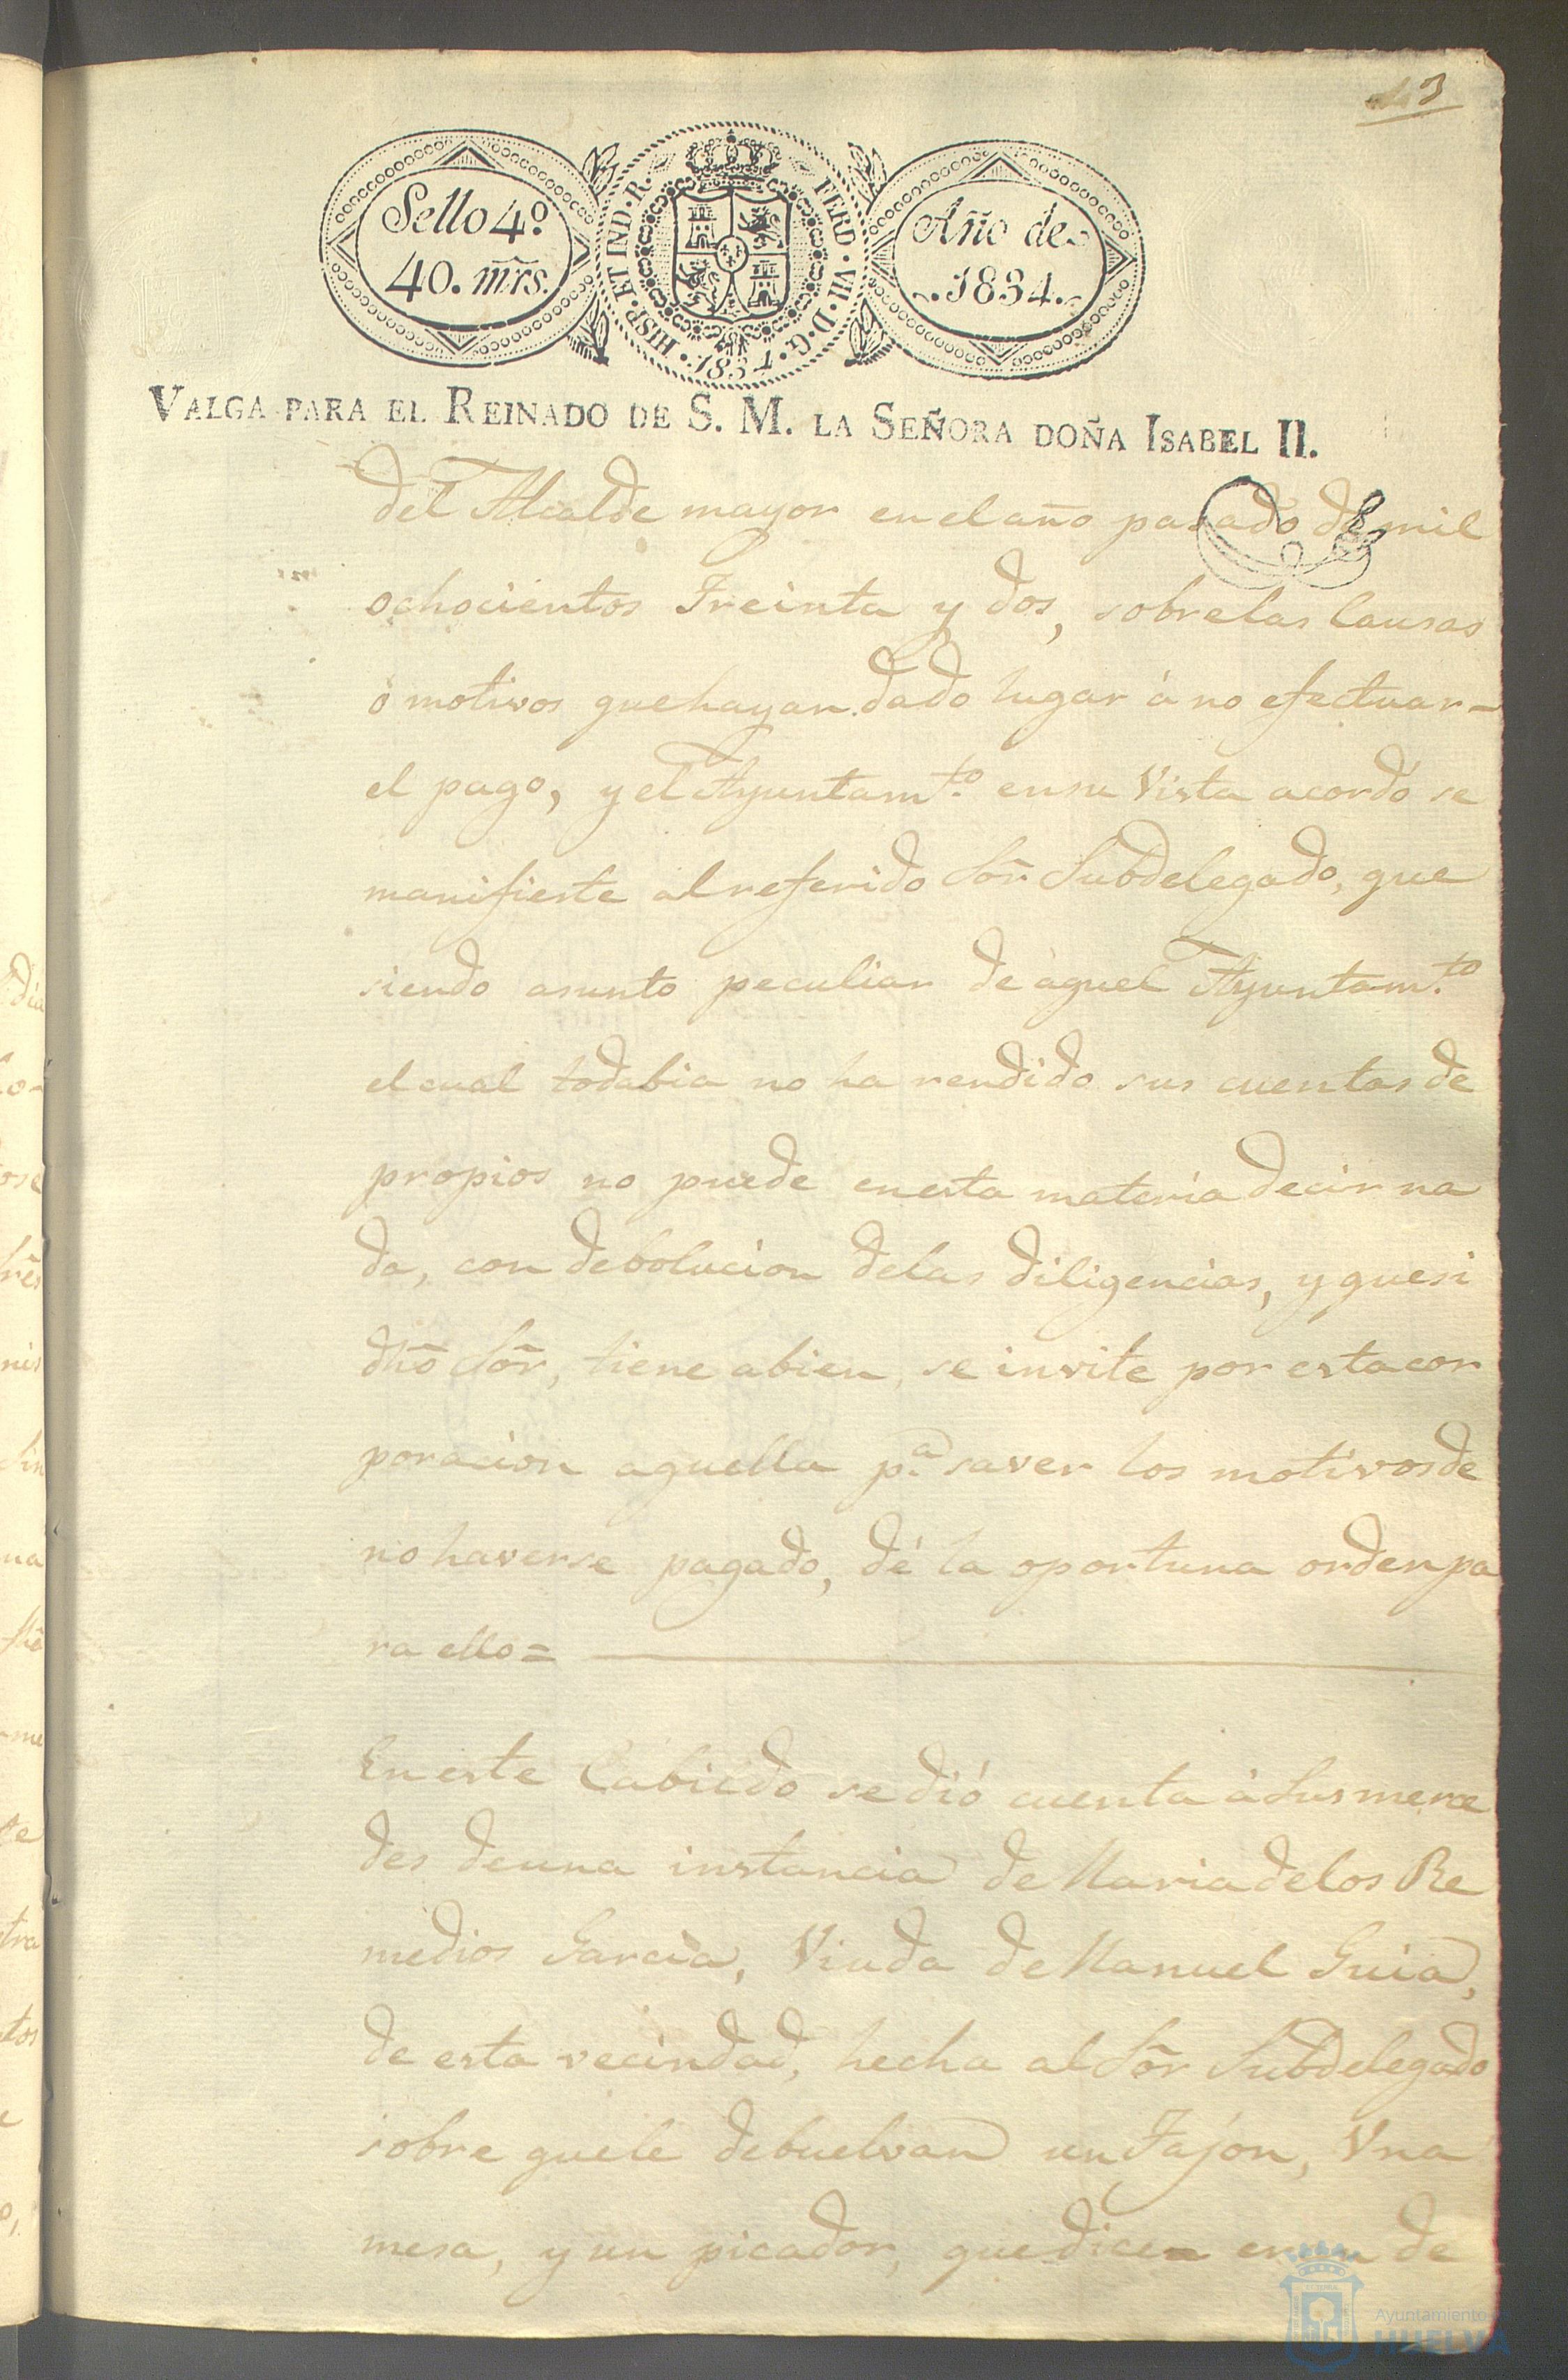 3
Sello 4.º
40. mrs.
HISP. ET IND. R. FERD. VII. D. G. 1834.
Año de
1834.
VALGA PARA EL REINADO DE S. M. LA SEÑORA DOÑA ISABEL II.
del Alcalde mayor en el año pasado de mil
ochocientos Treinta y dos, sobre las Causas
ó motivos que hayan dado lugar á no efectuar-
el pago, y el Ayuntam.to en su Vista acordó se
manifieste al referido Sõr Subdelegado, que
siendo asunto peculiar de aquel Ayuntam.to
el cual todabia no ha rendido sus cuentas de
propios no puede en esta materia decir na
da, con debolucion de las diligencias, y que si
dhõ Sõr, tiene abien, se invite por esta cor
poracion aquella p.a saver los motivos de
no haverse pagado, dé la oportuna orden pa
ra ello =
En este Cabildo se dió cuenta á Sus merce
des de una instancia de Maria de los Re
medios Garcia, Viuda de Manuel Guia,
de esta vecindad, hecha al Sõr Subdelegado
sobre que le debuelvan un Tajon, Vna
mesa, y un picador, que dicen eran de
Ayuntamiento
HUELVA